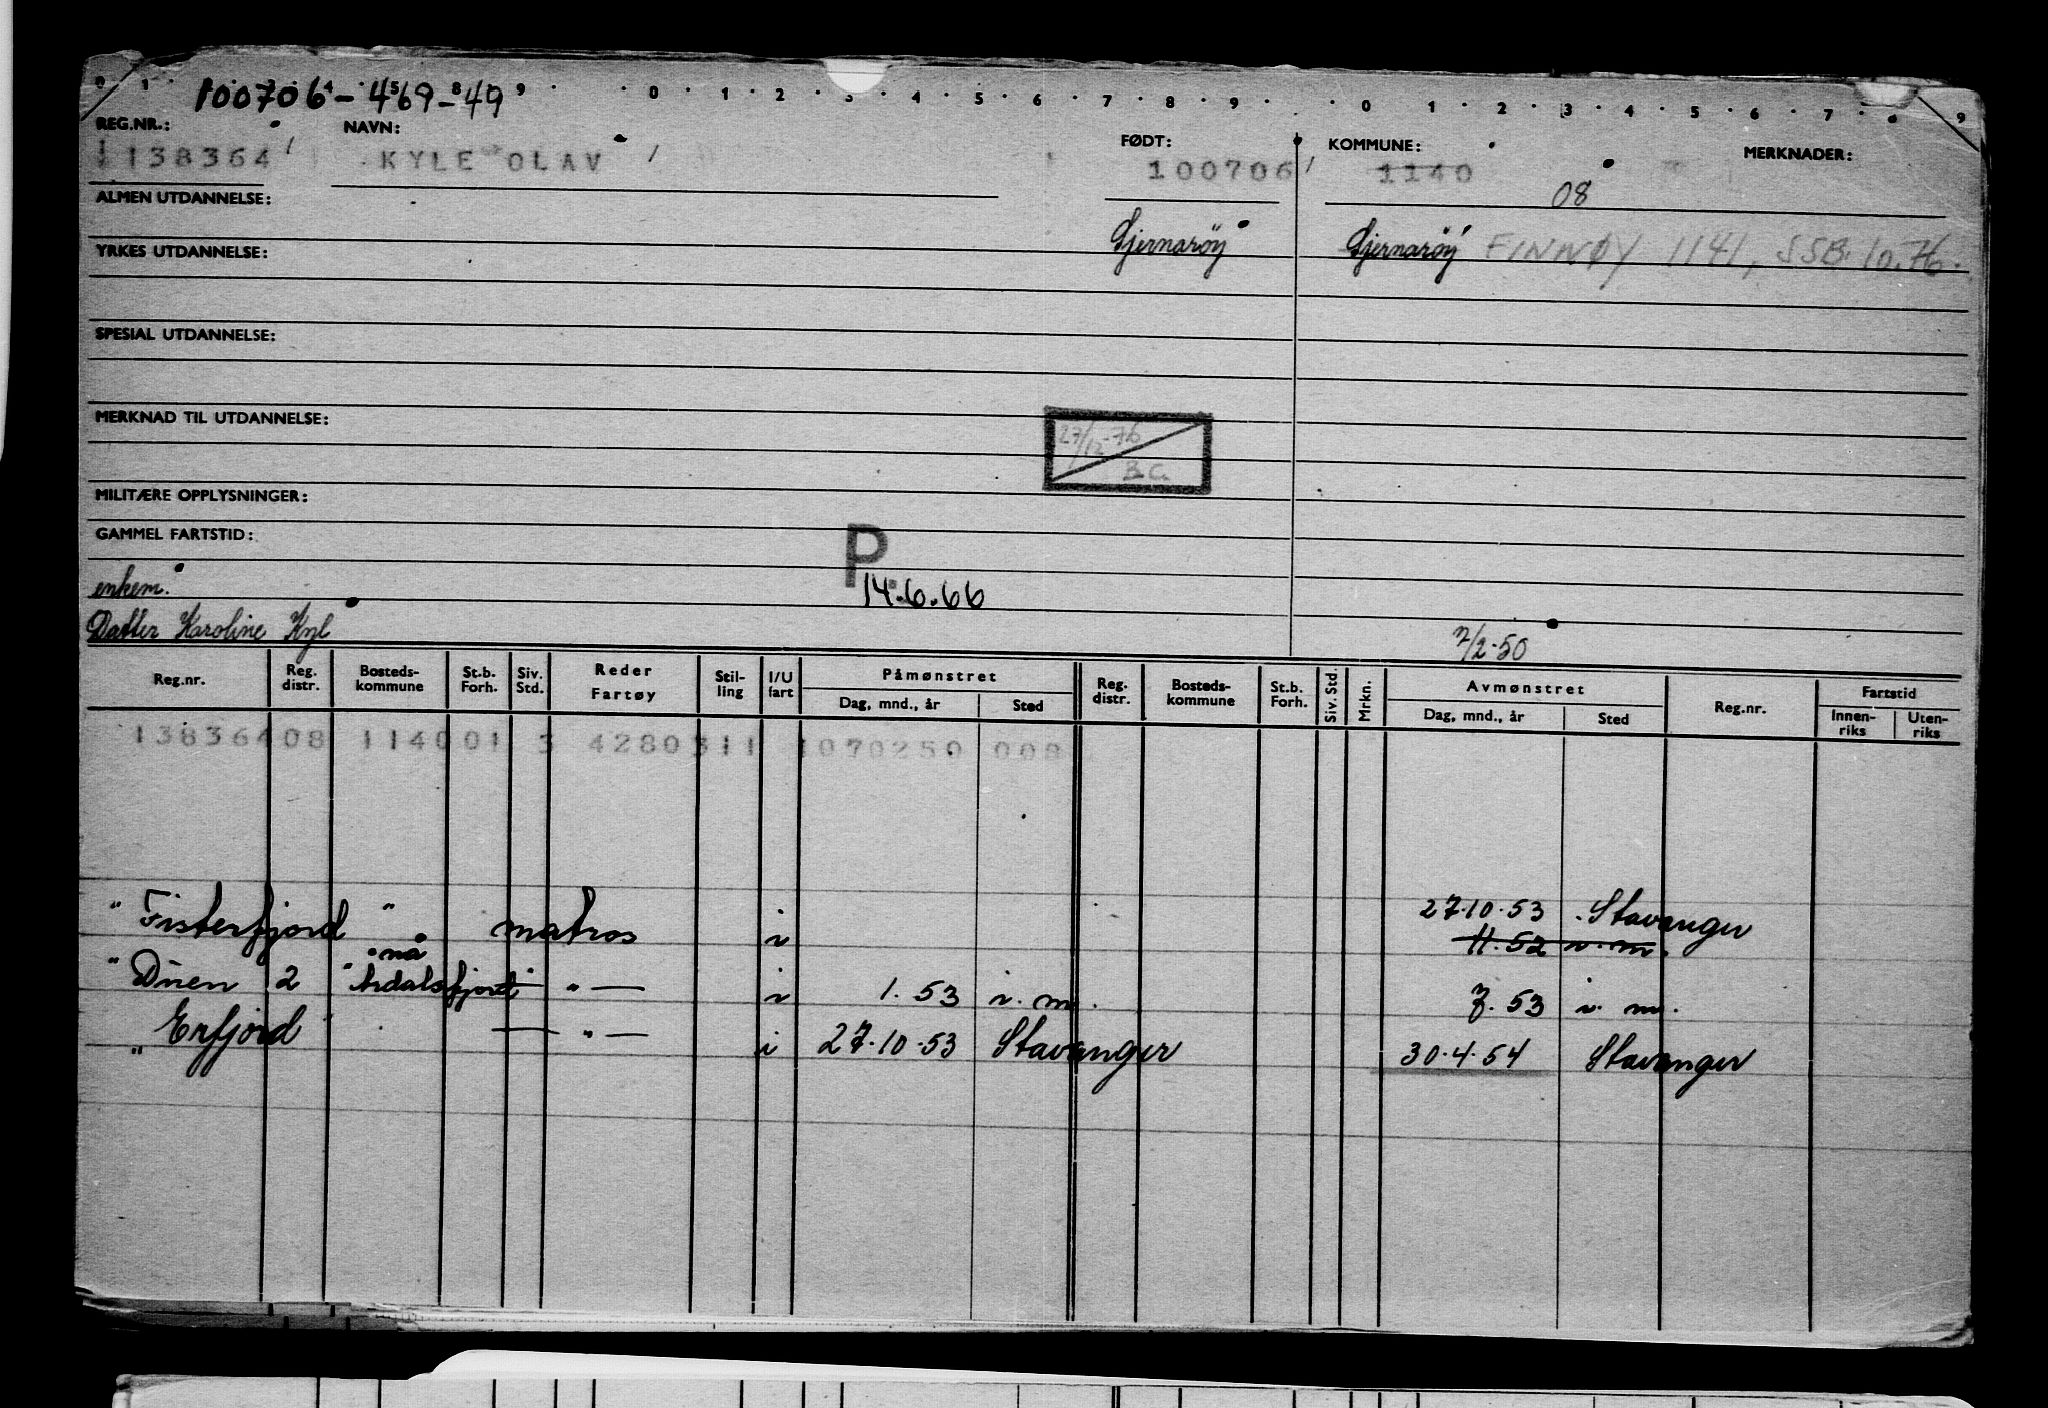 0 1 100706 - 4569 - 849 9 0 1 2 3 4 5 6 7 8 9 0 1 2 3 4 5 6 7 8 9
REG.NR.: NAVN: FØDT: KOMMUNE: MERKNADER:
138364 KYLE OLAV 100706 1140
08
ALMEN UTDANNELSE:
Sjernarøy Sjernarøy FINNØY 1141, SSB. 10.76.
YRKES UTDANNELSE:
SPESIAL UTDANNELSE:
MERKNAD TIL UTDANNELSE:
27/12-76
B.C.
MILITÆRE OPPLYSNINGER:
GAMMEL FARTSTID:
P
enkem. 14.6.66
Datter Karoline Kyl 7/2-50
Reg.nr. Reg. distr. Bosteds-kommune St.b. Forh. Siv. Std. Reder Fartøy Stil-ling I/U fart Påmønstret Reg. distr. Bosteds-kommune St.b. Forh. Siv. Std. Mrkn. Avmønstret Reg.nr. Fartstid
Dag, mnd., år Sted Dag, mnd., år Sted Innen-riks Uten-riks
138364 08 1140 01 3 4280311 1070250 008
" Fisterfjord " matros i 27.10.53 Stavanger
11.52 i. m.
nå
" Duen 2 " Årdalsfjord " — " — i 1.53 i. m. 7.53 i. m.
" Erfjord " — " — i 27.10.53 Stavanger 30.4.54 Stavanger